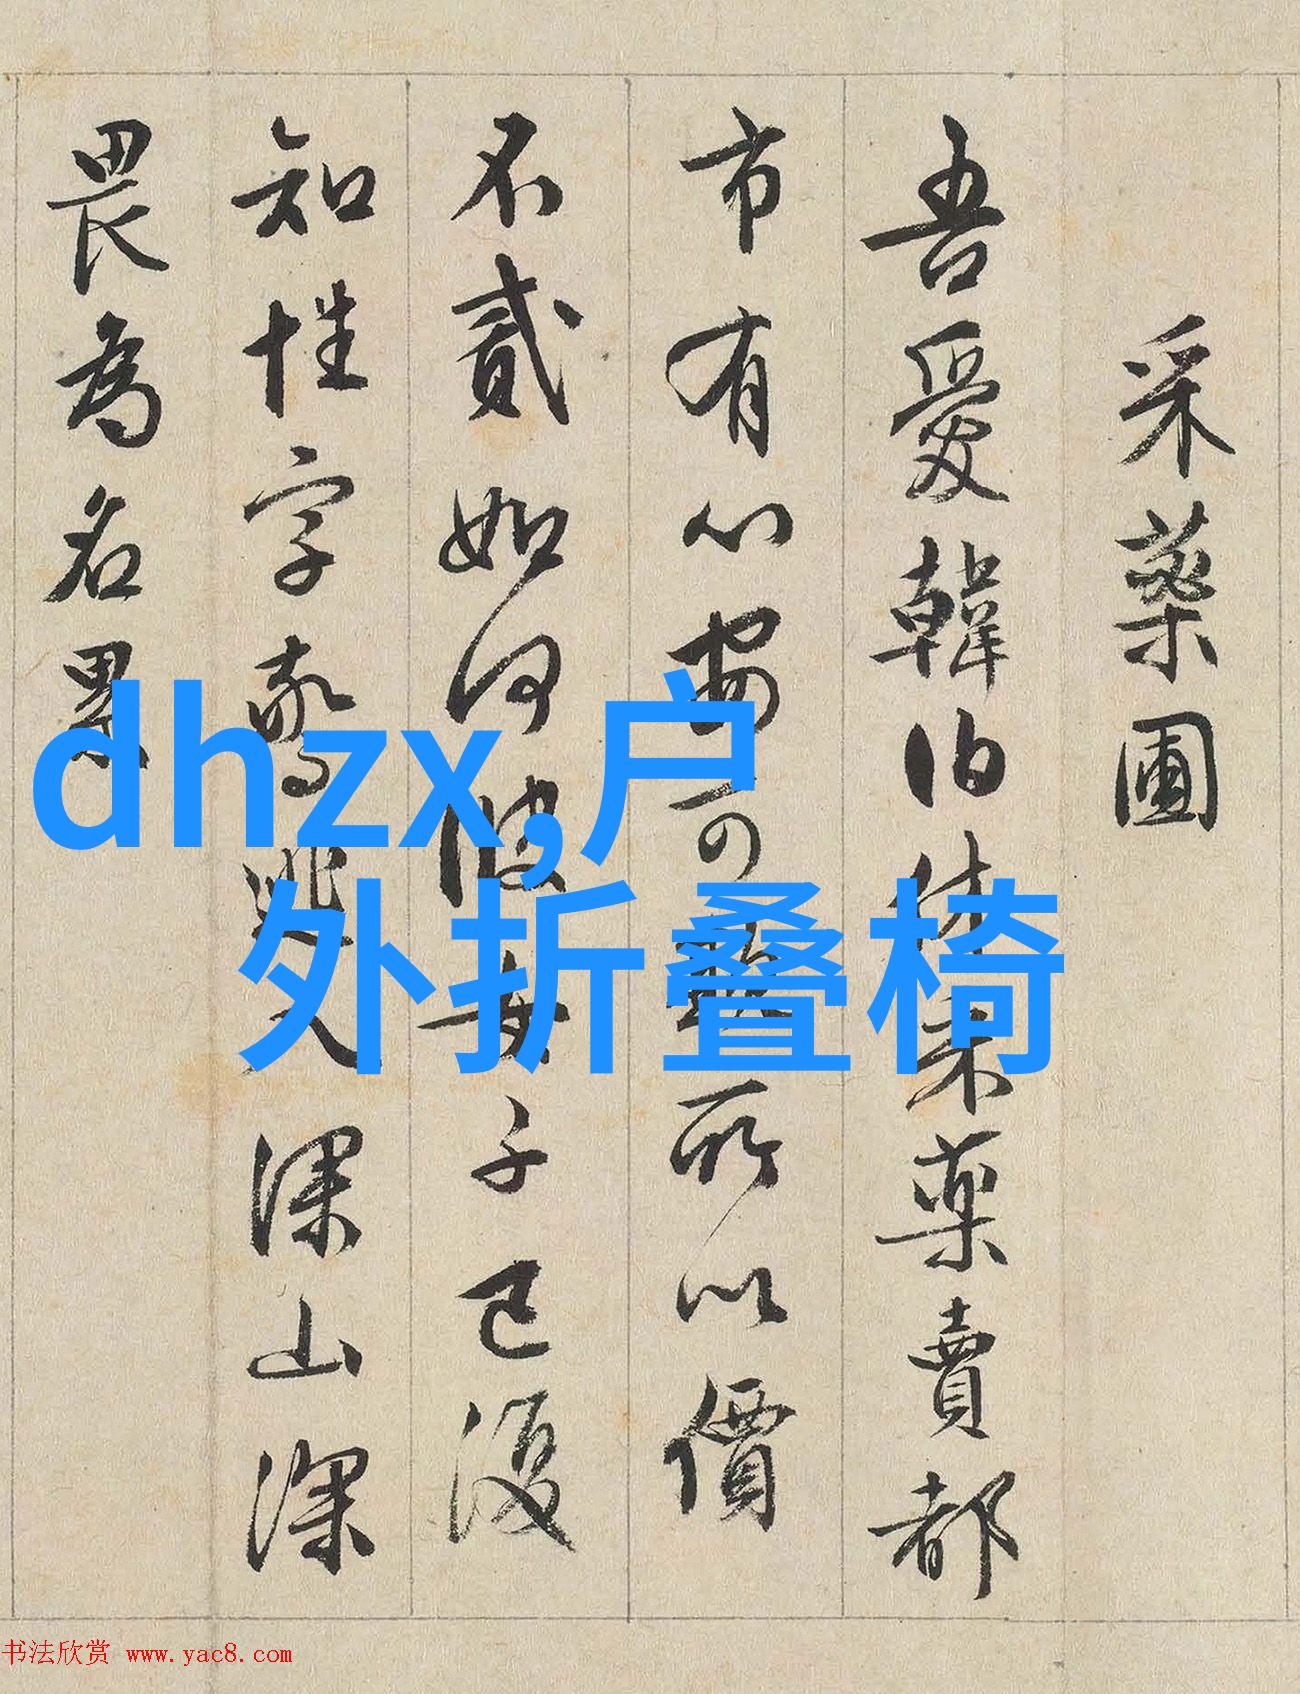 采藥圃
吾愛韓伯休采藥賣都
市有心安可所以價
不貳如何彼女子已復
知姓字驚逃入深山深
畏為名累
dhzx,户
外折叠椅
书法欣赏 www.yac8.com